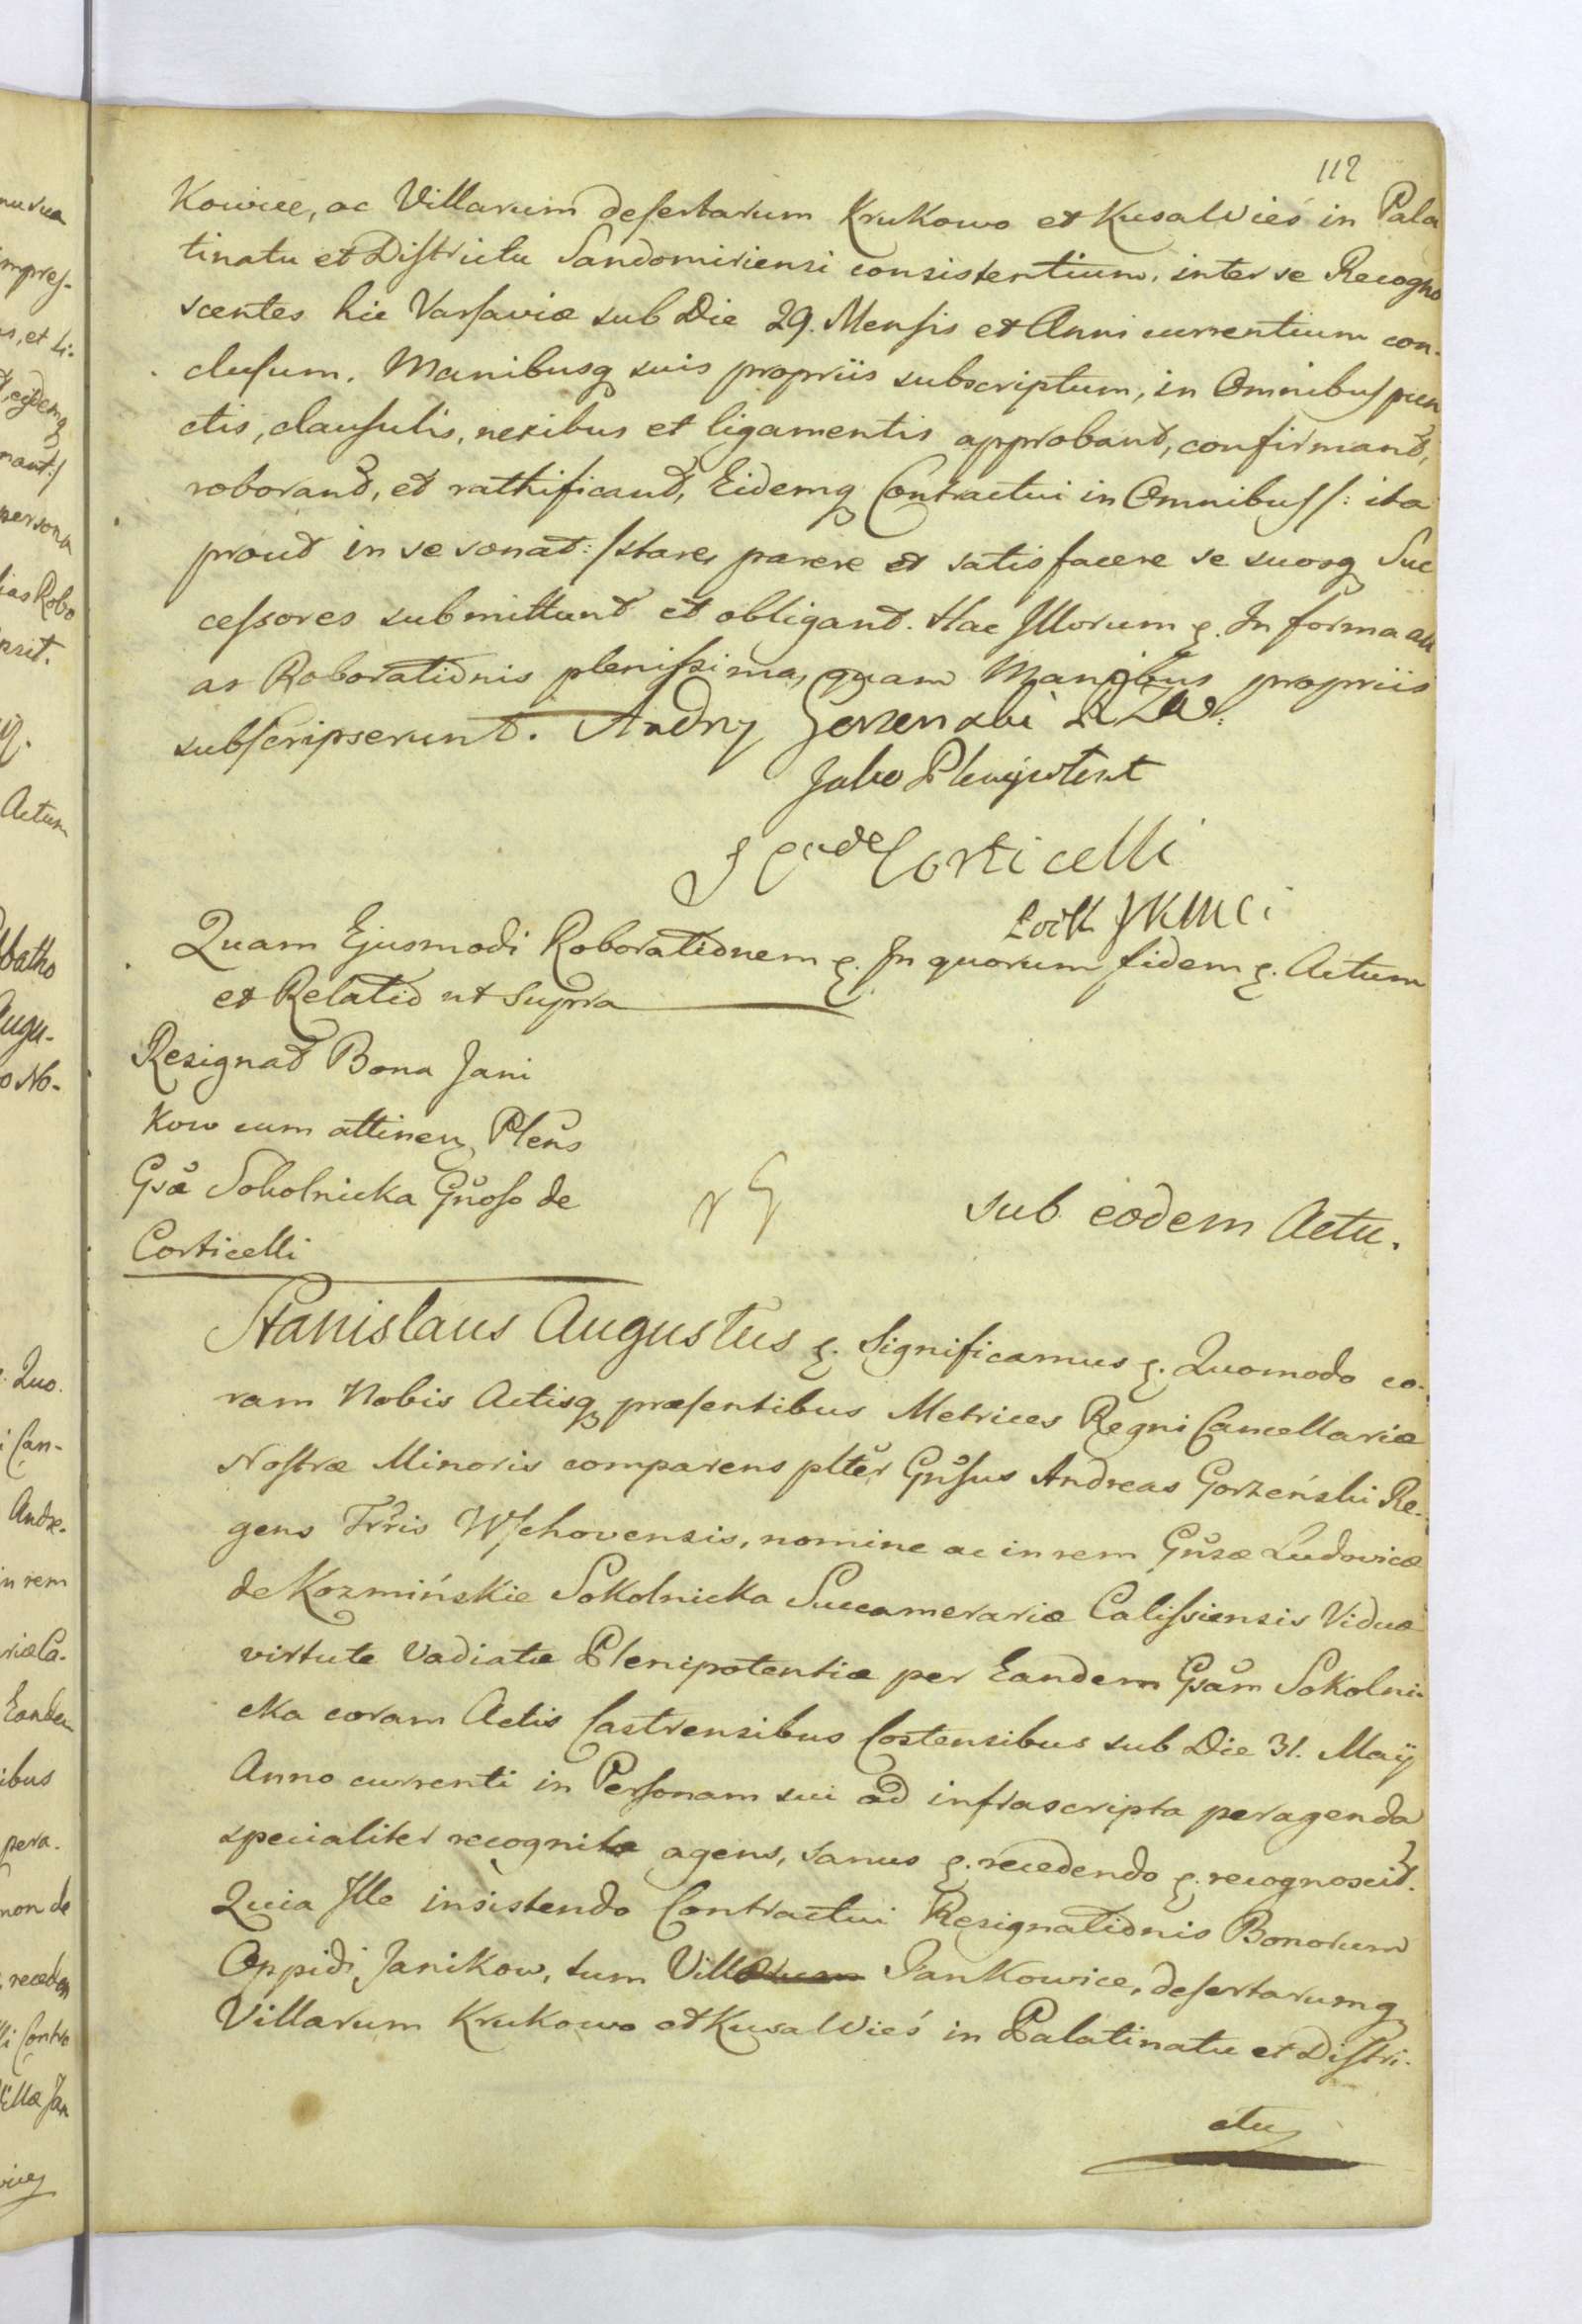 112
Kowice, ac Villarum desertarum Krukowo et Kusa Wieś in Pala
tinatu et Districtu Sandomiriensi consistentium, inter se Recogno
scentes hic Varsaviæ sub Die 29. Mensis et Anni currentium con-
clusum. Manibusq suis propriis subscriptum, in Omnibus pun
ctis, clausulis, nexibus et ligamentis approbant, confirmant,
roborant, et rathificant, Eidemq Contractui in Omnibus /: ita
prout in se sonat :/ stare, parere et satisfacere se suosq Suc
cessores submittunt et obligant. Hac Illorum &. In forma
as Roborationis plenissima, quam Manibus propriis
subscripserunt. Andrzy Gorzenski
Jako Plenipotent
de Corticelli
JKMCi
Quam Ejusmodi Roborationem &. In quorum fidem &. Actum
et Relatio ut Supra
Resignat Bona Jani
kow cum attinen Plens
Gsa Sokolnicka Gnoso de
Corticelli
sub eodem Actu.
Stanislaus Augustus &. Significamus &. Quomodo co-
ram Nobis Actisq præsentibus Metrices Regni Cancellariæ
Nostræ Minoris comparens plter Gnsus Andreas Gorzeński Re-
gens Trris Wschovensis, nomine ac in rem Gnsæ Ludovicæ
de Kozmińskie Sokolnicka Succamerariæ Calissiensis Viduæ
virtute Vadiatæ Plenipotentiæ per Eandem Gsam Sokolni-
cka coram Actis Castrensibus Costensibus sub Die 31. Maÿ
Anno currenti in Personam sui ad infrascripta peragenda
specialiter recognitæ agens, sanus &. recedendo &. recognoscit.
Quia Ille insistendo Contractui Resignationis Bonorum
Oppidi Janikow, tum Villarum Jankowice, desertarumq
Villarum Krukowo et Kusa Wieś in Palatinatu et Distri-
ctu